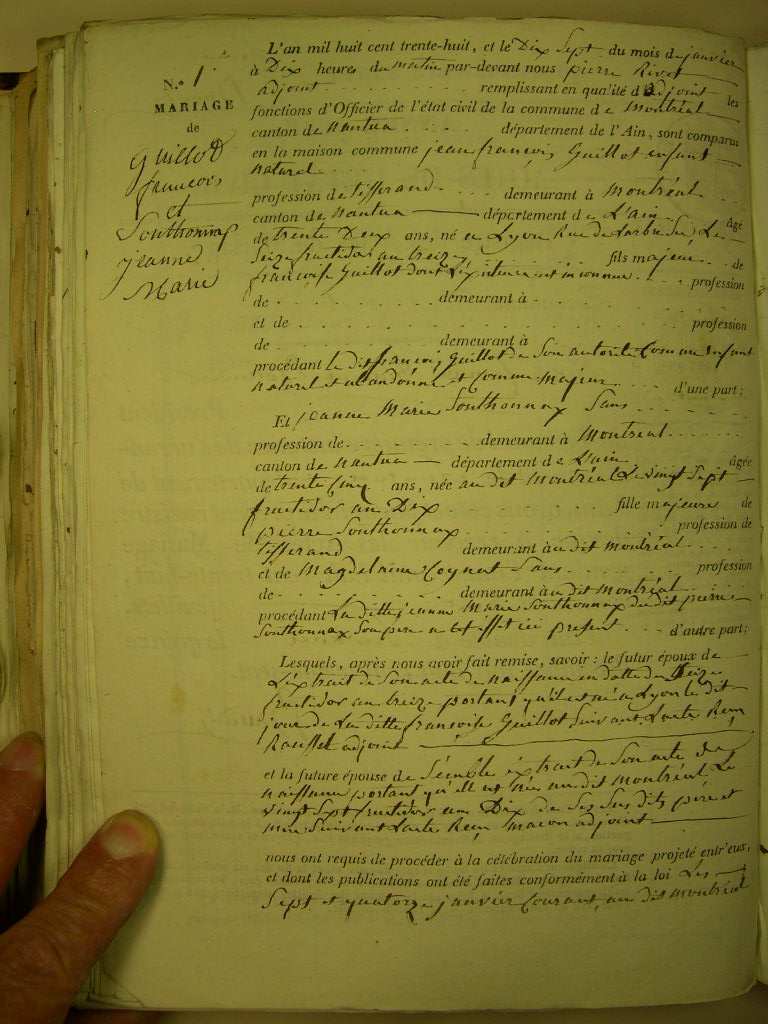 N.° 1
MARIAGE
de
Guillot
francois
et
Southonnax
jeanne
Marie
L'an mil huit cent trente-huit, et le Dix Sept du mois de janvier
à Dix heures du matin par-devant nous pierre Rivet
adjoint remplissant en qualité d'adjoint les
fonctions d'Officier de l'état civil de la commune de Montréal
canton de Nantua département de l'Ain, sont comparus
en la maison commune jean françois Guillot enfant
naturel
profession de tisserand demeurant à Montréal
canton de Nantua département de L'ain âgé
de trente Deux ans, né a Lyon Rue de Le
Seize fructidor an treize, fils majeur de
francoise Guillot dont inconnue profession
de demeurant à
et de profession
de demeurant à
procédant le dit francois Guillot de Son autorité Comme Enfant
naturel et abandonné et Comme majeur d'une part;
Et jeanne Marie Southonnax Sans
profession de demeurant à Montréal
canton de Nantua département de L'ain âgée
de trente Cinq ans, née au dit Montréal Le vingt Sept
fructidor an Dix fille majeure de
pierre Southonnax profession de
tisserand demeurant à au dit Montréal
et de Magdelaine Coynat Sans profession
de demeurant à au dit Montréal
procédant La ditte jeanne Marie Southonnax du dit pierre
Southonnax Son pere a cet effet ici présent d'autre part;
Lesquels, après nous avoir fait remise, savoir: le futur époux de
L'extrait de Son acte de Naissance en datte du Seize
fructidor an treize portant qu'il est né a Lyon le dit
jour de La ditte francoise Guillot Suivant L'acte
adjoint
et la future épouse de Semblable extrait de Son acte de
Naissance portant qu'elle est née au dit Montréal Le
vingt Sept fructidor an Dix de Ses Sus dits père et
mère Suivant L'acte Macon adjoint
nous ont requis de procéder à la célébration du mariage projeté entr'eux,
et dont les publications ont été faites conformément à la loi Les
Sept et quatorze janvier Courant, au dit Montréal